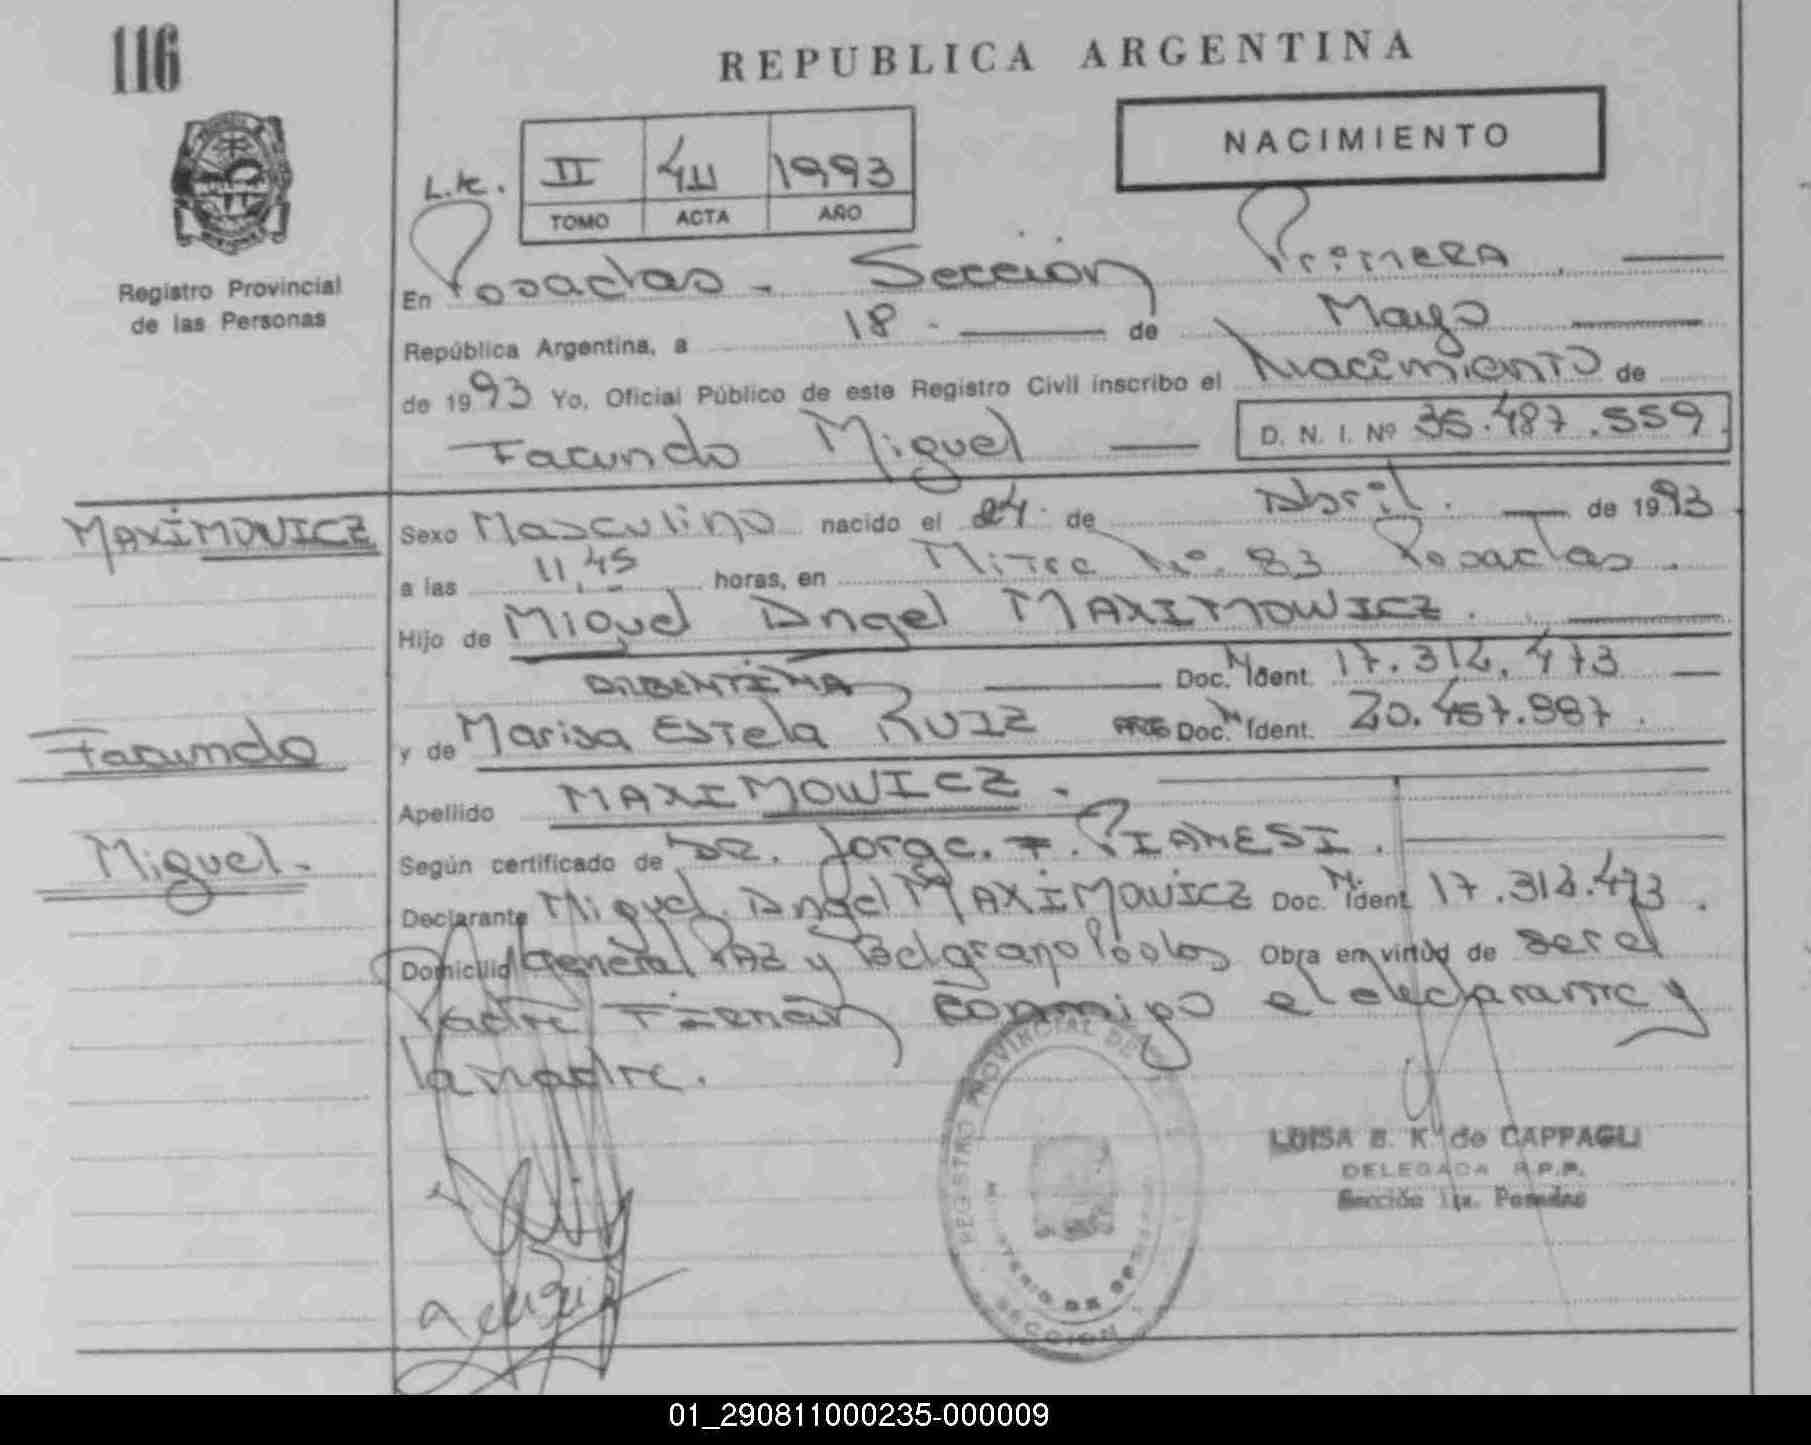 116
REPUBLICA ARGENTINA
NACIMIENTO
L.K.
II 411 1993
TOMO ACTA AÑO
Registro Provincial
de las Personas
En Posadas - Sección Primera
República Argentina, a 18 - de Mayo
de 1993 Yo, Oficial Público de este Registro Civil inscribo el Nacimiento de
Facundo Miguel D. N. I. Nº 35.487.559
MAXIMOWICZ
Sexo Masculino nacido el 24 de Abril. de 1993
a las 11,45 horas, en Mitre Nº. 83 Posadas.
Hijo de Miguel Angel MAXIMOWICZ.
ARGENTINA Doc. N. Ident. 17.312.473
Facundo
y de Marisa Estela RUIZ Doc. N Ident. 20.457.987.
Apellido MAXIMOWICZ.
Miguel.
Según certificado de DR. Jorge. F. PIANESI.
Declarante Miguel Angel MAXIMOWICZ Doc. N. Ident 17.312.473.
Domicilio General PAZ y Belgrano Posadas Obra en virtud de ser el
Padre Firman conmigo el declarante y
la madre.
REGISTRO PROVINCIAL DE
MINISTERIO DE
SECCION
LUISA B. K. de CAPPAGLI
DELEGADA R.P.P.
Sección 1ra. Posadas
01_290811000235-000009